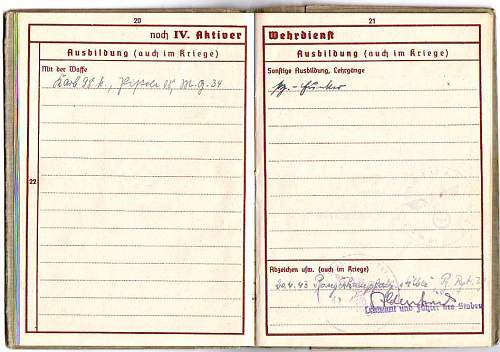 20
noch IV. Aktiver
Ausbildung (auch im Kriege)
Mit der Waffe
Karb 98 k., Pistole 08, M.G. 34
22
21
Wehrdienst
Ausbildung (auch im Kriege)
Sonstige Ausbildung, Lehrgänge
Funker
Abzeichen usw. (auch im Kriege)
20.4.43 Panzerkampfabz. "Silber" Pz. Rgt.
Leutnant und Führer des Stabes